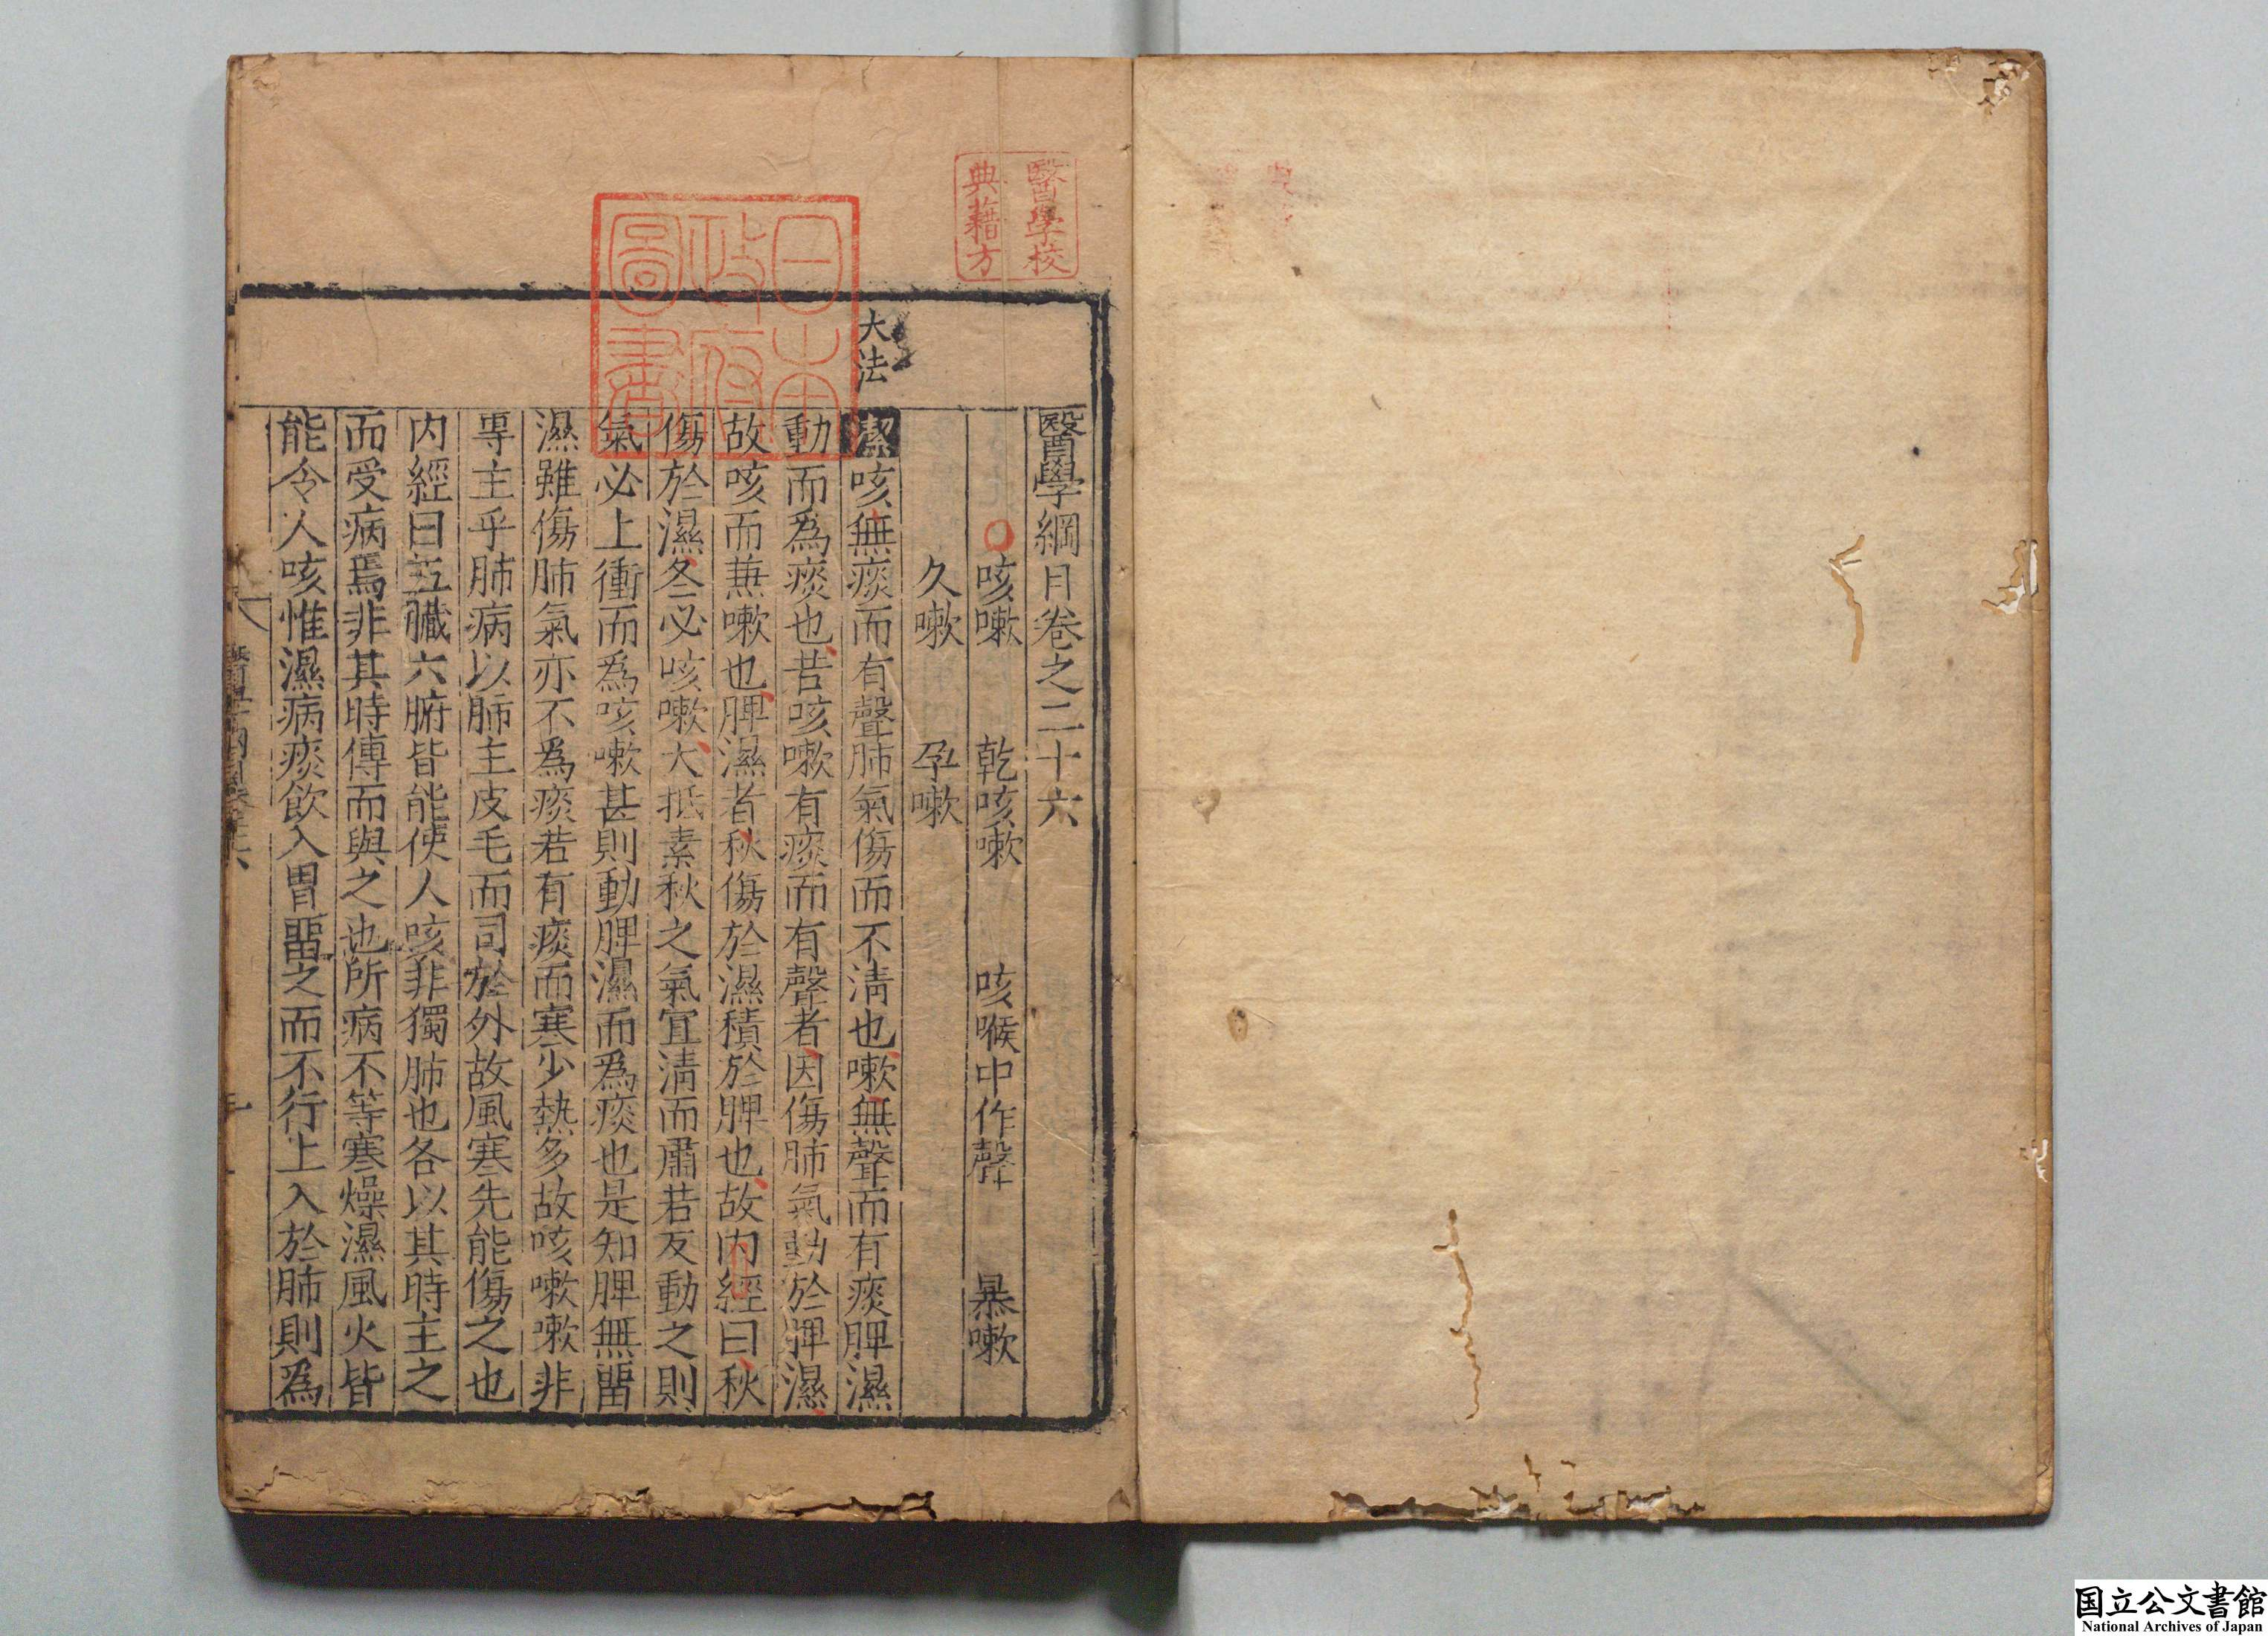 醫學校
典籍方
日本
政府
圖書
醫學綱目卷之二十六
○咳嗽 乾咳嗽 咳喉中作聲 暴嗽
久嗽 孕嗽
大法
潔咳無痰而有聲肺氣傷而不清也嗽無聲而有痰脾濕
動而為痰也若咳嗽有痰而有聲者因傷肺氣動於脾濕
故咳而兼嗽也脾濕者秋傷於濕積於脾也故内經曰秋
傷於濕冬必咳嗽大抵素秋之氣宜清而肅若反動之則
氣必上衝而爲咳嗽甚則動脾濕而爲痰也是知脾無畱
濕雖傷肺氣亦不爲痰若有痰而寒少熱多故咳嗽嗽非
專主乎肺病以肺主皮毛而司於外故風寒先能傷之也
内經曰五臟六腑皆能使人咳非獨肺也各以其時主之
而受病焉非其時傳而與之也所病不等寒燥濕風火皆
能令人咳惟濕病痰飲入胃畱之而不行上入於肺則爲
国立公文書館
National Archives of Japan